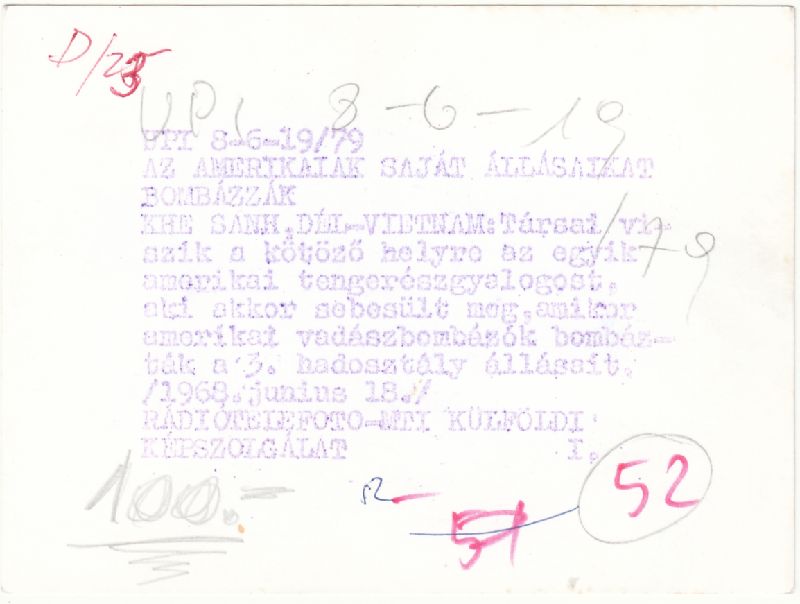 D/23
UPI 8-6-19
/79
UPI 8-6-19/79
AZ AMERIKAIAK SAJÁT ÁLLÁSAIKAT
BOMBÁZZÁK
KHE SANH,DÉL-VIETNAM:Társai vi-
szik a kötöző helyre az egyik
amerikai tengerészgyalogost,
aki akkor sebesült meg,amikor
amerikai vadászbombázók bombáz-
ták a 3. hadosztály állásait.
/1968.junius 18./
RÁDIÓTELEFOTO-MTI KÜLFÖLDI
KÉPSZOLGÁLAT I.
100.-
52
51
52